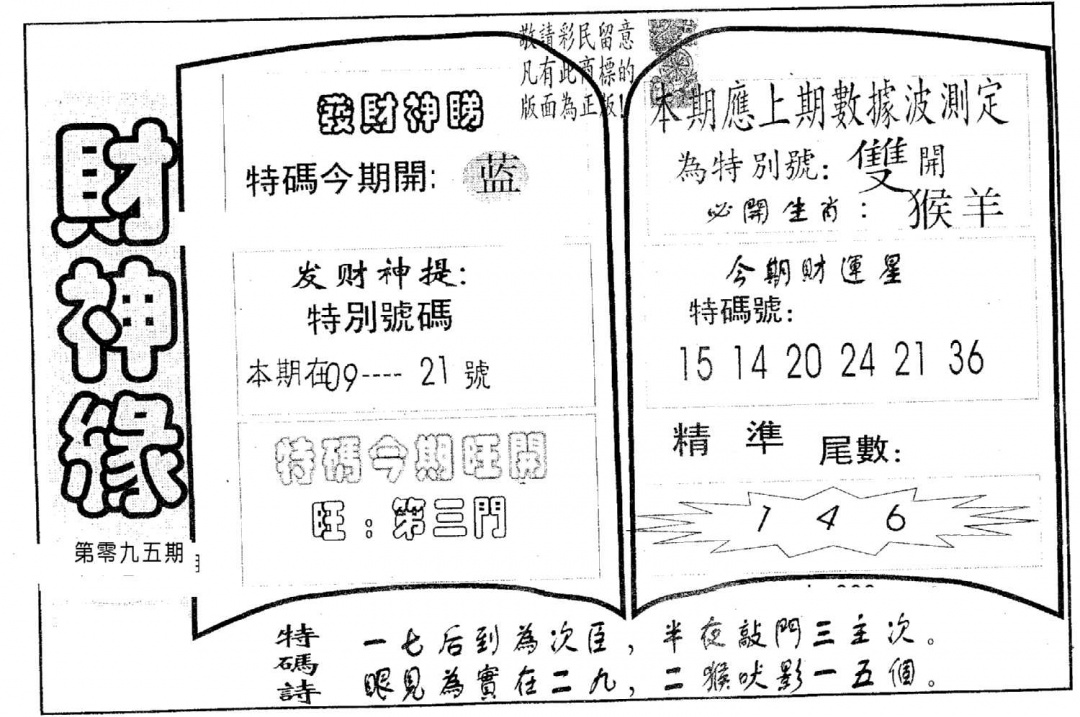 財神緣
第零九五期
敬請彩民留意
凡有此商標的
版面為正版!
發財神睇
特碼今期開: 蓝
发财神提:
特別號碼
本期在09---- 21號
特碼今期旺開
旺:第三門
本期應上期數據波測定
為特別號: 雙開
必開生肖: 猴羊
今期財運星
特碼號:
15 14 20 24 21 36
精準 尾數:
1 4 6
特碼詩
一七后到為次臣，半夜敲門三主次。
眼見為實在二九，二猴吠影一五個。